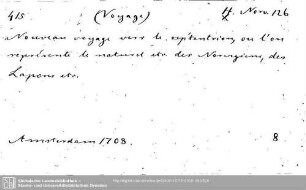 415 (Voyage) H. Norv 126
Nouveau voyage vers le septentrion, ou l'on
représente le naturel etc. der Norwgiens, des
Lapons etc.
Amsterdam 1708. 8
Sächsische Landesbibliothek -
Staats- und Universitätsbibliothek Dresden